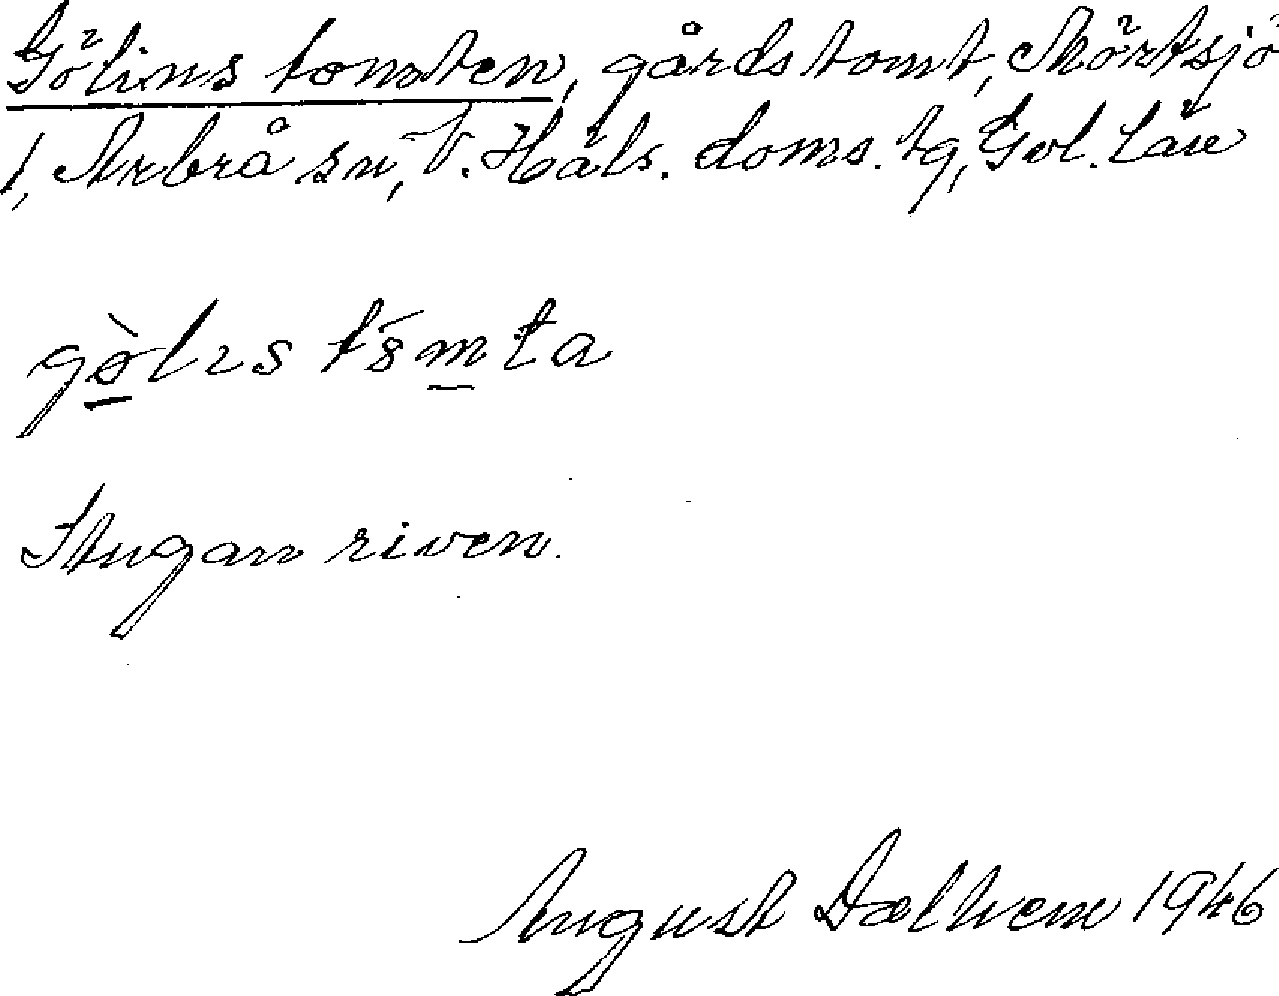 Gölins tomten, gårdstomt, Mörtsjö
1, Arbrå sn, V. Häls. doms. tg, Gvl. Län
Stugan riven.
August Dalhem 1946